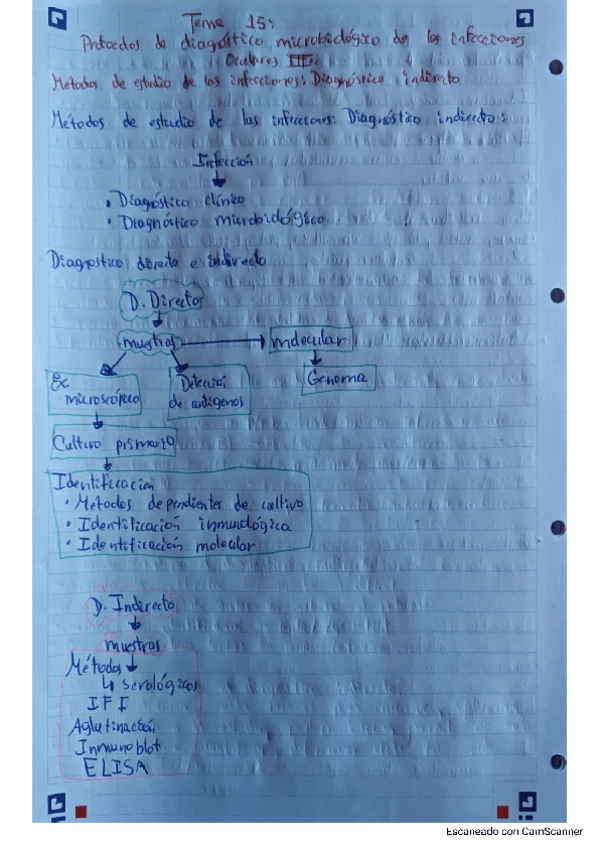 Tema 15:
Protocolos de diagnóstico microbiológico de las infecciones
Oculares III:
Métodos de estudio de las infecciones: Diagnóstico indirecto
Métodos de estudio de las infecciones: Diagnóstico indirecto:
Infección
• Diagnóstico clínico
• Diagnóstico microbiológico
Diagnostico directo e indirecto
D. Directo
muestras
molecular
Ex microscópico
Detección de antígenos
Genoma
Cultivo primario
Identificación
• Métodos dependientes de cultivo
• Identificación inmunológica
• Identificación molecular
D. Indirecto
muestras
Métodos
serológicos
IFI
Aglutinación
Inmunoblot
ELISA
Escaneado con CamScanner